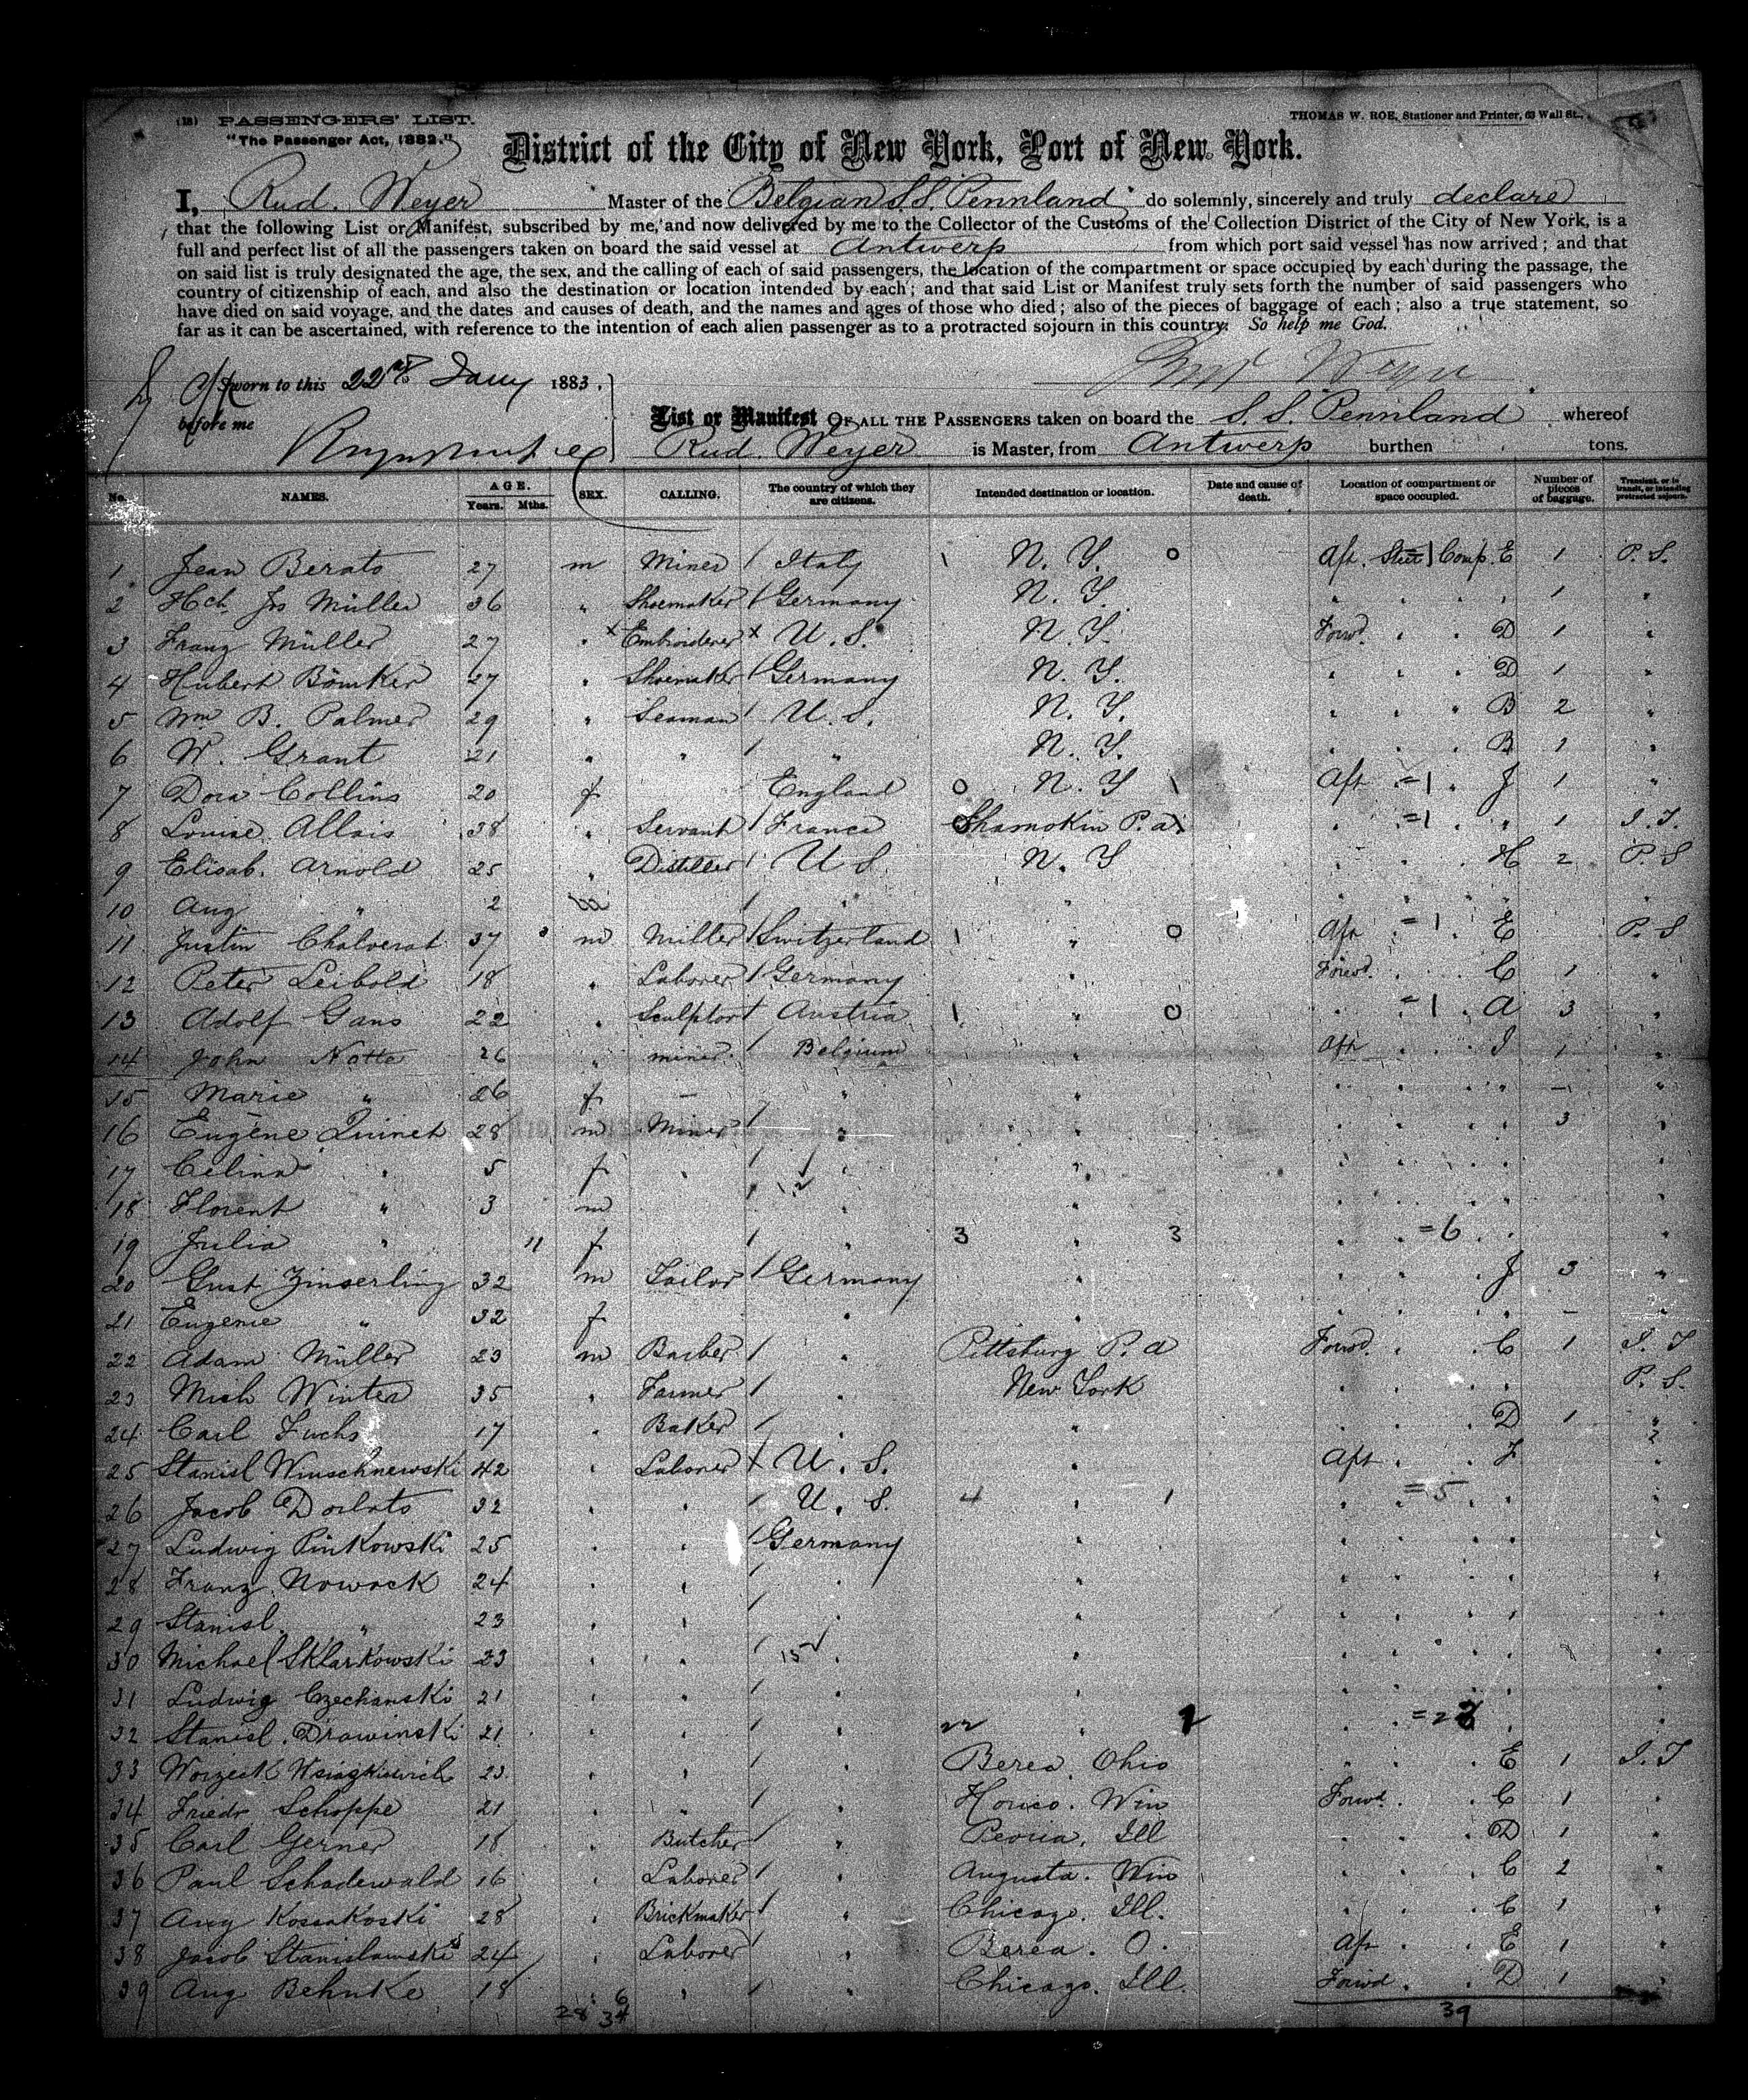 (18) PASSENGERS' LIST.
THOMAS W. ROE, Stationer and Printer, 63 Wall St.
"The Passenger Act, 1882."
District of the City of New York, Port of New York.
I, Rud. Weyer Master of the Belgian S.S. Pennland do solemnly, sincerely and truly declare
that the following List or Manifest, subscribed by me, and now delivered by me to the Collector of the Customs of the Collection District of the City of New York, is a
full and perfect list of all the passengers taken on board the said vessel at Antwerp from which port said vessel has now arrived; and that
on said list is truly designated the age, the sex, and the calling of each of said passengers, the location of the compartment or space occupied by each during the passage, the
country of citizenship of each, and also the destination or location intended by each; and that said List or Manifest truly sets forth the number of said passengers who
have died on said voyage, and the dates and causes of death, and the names and ages of those who died; also of the pieces of baggage of each; also a true statement, so
far as it can be ascertained, with reference to the intention of each alien passenger as to a protracted sojourn in this country. So help me God.
Weyer
Sworn to this 22nd Jany 1883.
before me
List or Manifest OF ALL THE PASSENGERS taken on board the S.S. Pennland whereof
Rud. Weyer is Master, from Antwerp burthen tons.
No. NAMES. AGE. Years. Mths. SEX. CALLING. The country of which they are citizens. Intended destination or location. Date and cause of death. Location of compartment or space occupied. Number of pieces of baggage. Transient, or in transit, or intending protracted sojourn.
1 Jean Berato 27 m Miner Italy N. Y. 0 Aft. =1 Comp. E 1 P. S.
2 Hch. Jos Müller 36 " Shoemaker Germany N. Y. " " " 1 "
3 Franz Müller 27 " x Embroiderer x U. S. N. Y. Forwd. " " D 1 "
4 Hubert Bömker 27 " Shoemaker Germany N. Y. " " " D 1 "
5 Wm B. Palmer 29 " Seaman U. S. N. Y. " " " B 2 "
6 W. Grant 21 " " " N. Y. " " " B 1 "
7 Dora Collins 20 f England 0 N. Y 1 Aft =1 " J 1 "
8 Louise Allais 38 " Servant France Shamokin P.a =1 " " 1 I. T.
9 Elisab. Arnold 25 " Distiller U S. N. Y " " " H 2 P. S
10 Aug " 2 " "
11 Justin Chalverat 37 m Miller Switzerland 1 " 0 Aft =1 E P. S
12 Peter Leibold 18 " Laborer Germany " Forwd. " " C 1 "
13 Adolf Gans 22 " Sculptor Austria 1 " 0 " =1 " A 3 "
14 John Notte 26 " miner Belgium " Aft " " I 1 "
15 Marie " 26 f — " " " " " — "
16 Eugène Quinet 28 m Miner " " " " " 3 "
17 Celina " 5 f " " " "
18 Florent " 3 m " " "
19 Julia " 11 f " 3 " 3 " =6 "
20 Gust. Zinserling 32 m Tailor Germany " " " " J 3 "
21 Eugenie " 32 f " " " " " — "
22 Adam Müller 23 m Barber " Pittsburg P. a Forwd. " C 1 I. T
23 Mich Winter 35 " Farmer " New York " " " P. S.
24 Carl Fuchs 17 " Baker " " " " D 1 "
25 Stanisl Winschnewski 42 " Laborer U. S. " Aft " " F "
26 Jacob Dorlato 32 " " U. S. 4 " 1 " =5 " "
27 Ludwig Pinkowski 25 " " Germany " " " " "
28 Franz Nowack 24 " " " " " " " "
29 Stanisl. " 23 " " " " " " " "
30 Michael Sklarkowski 23 " " 15 " " " " " "
31 Ludwig Czechanski 21 " " " " " " " "
32 Stanisl. Drawinski 21 " " " 22 " 1 " =23 " "
33 23 " " " Berea. Ohio " " E 1 I. T
34 Friedr Schoppe 21 " " " Win Forwd. " C 1 "
35 Carl Gerner 18 " Butcher " Peoria. Ill " " D 1 "
36 Paul Schadewald 16 " Laborer " Augusta. Win " " C 2 "
37 Aug Kossakoski 28 " Brickmaker " Chicago. Ill. " " C 1 "
38 Jacob Stanislawski 24 " Laborer " Berea. O. Aft " E 1 "
39 Aug Behnke 18 " " " Chicago. Ill. Forwd. " D 1 "
28 6 34 39